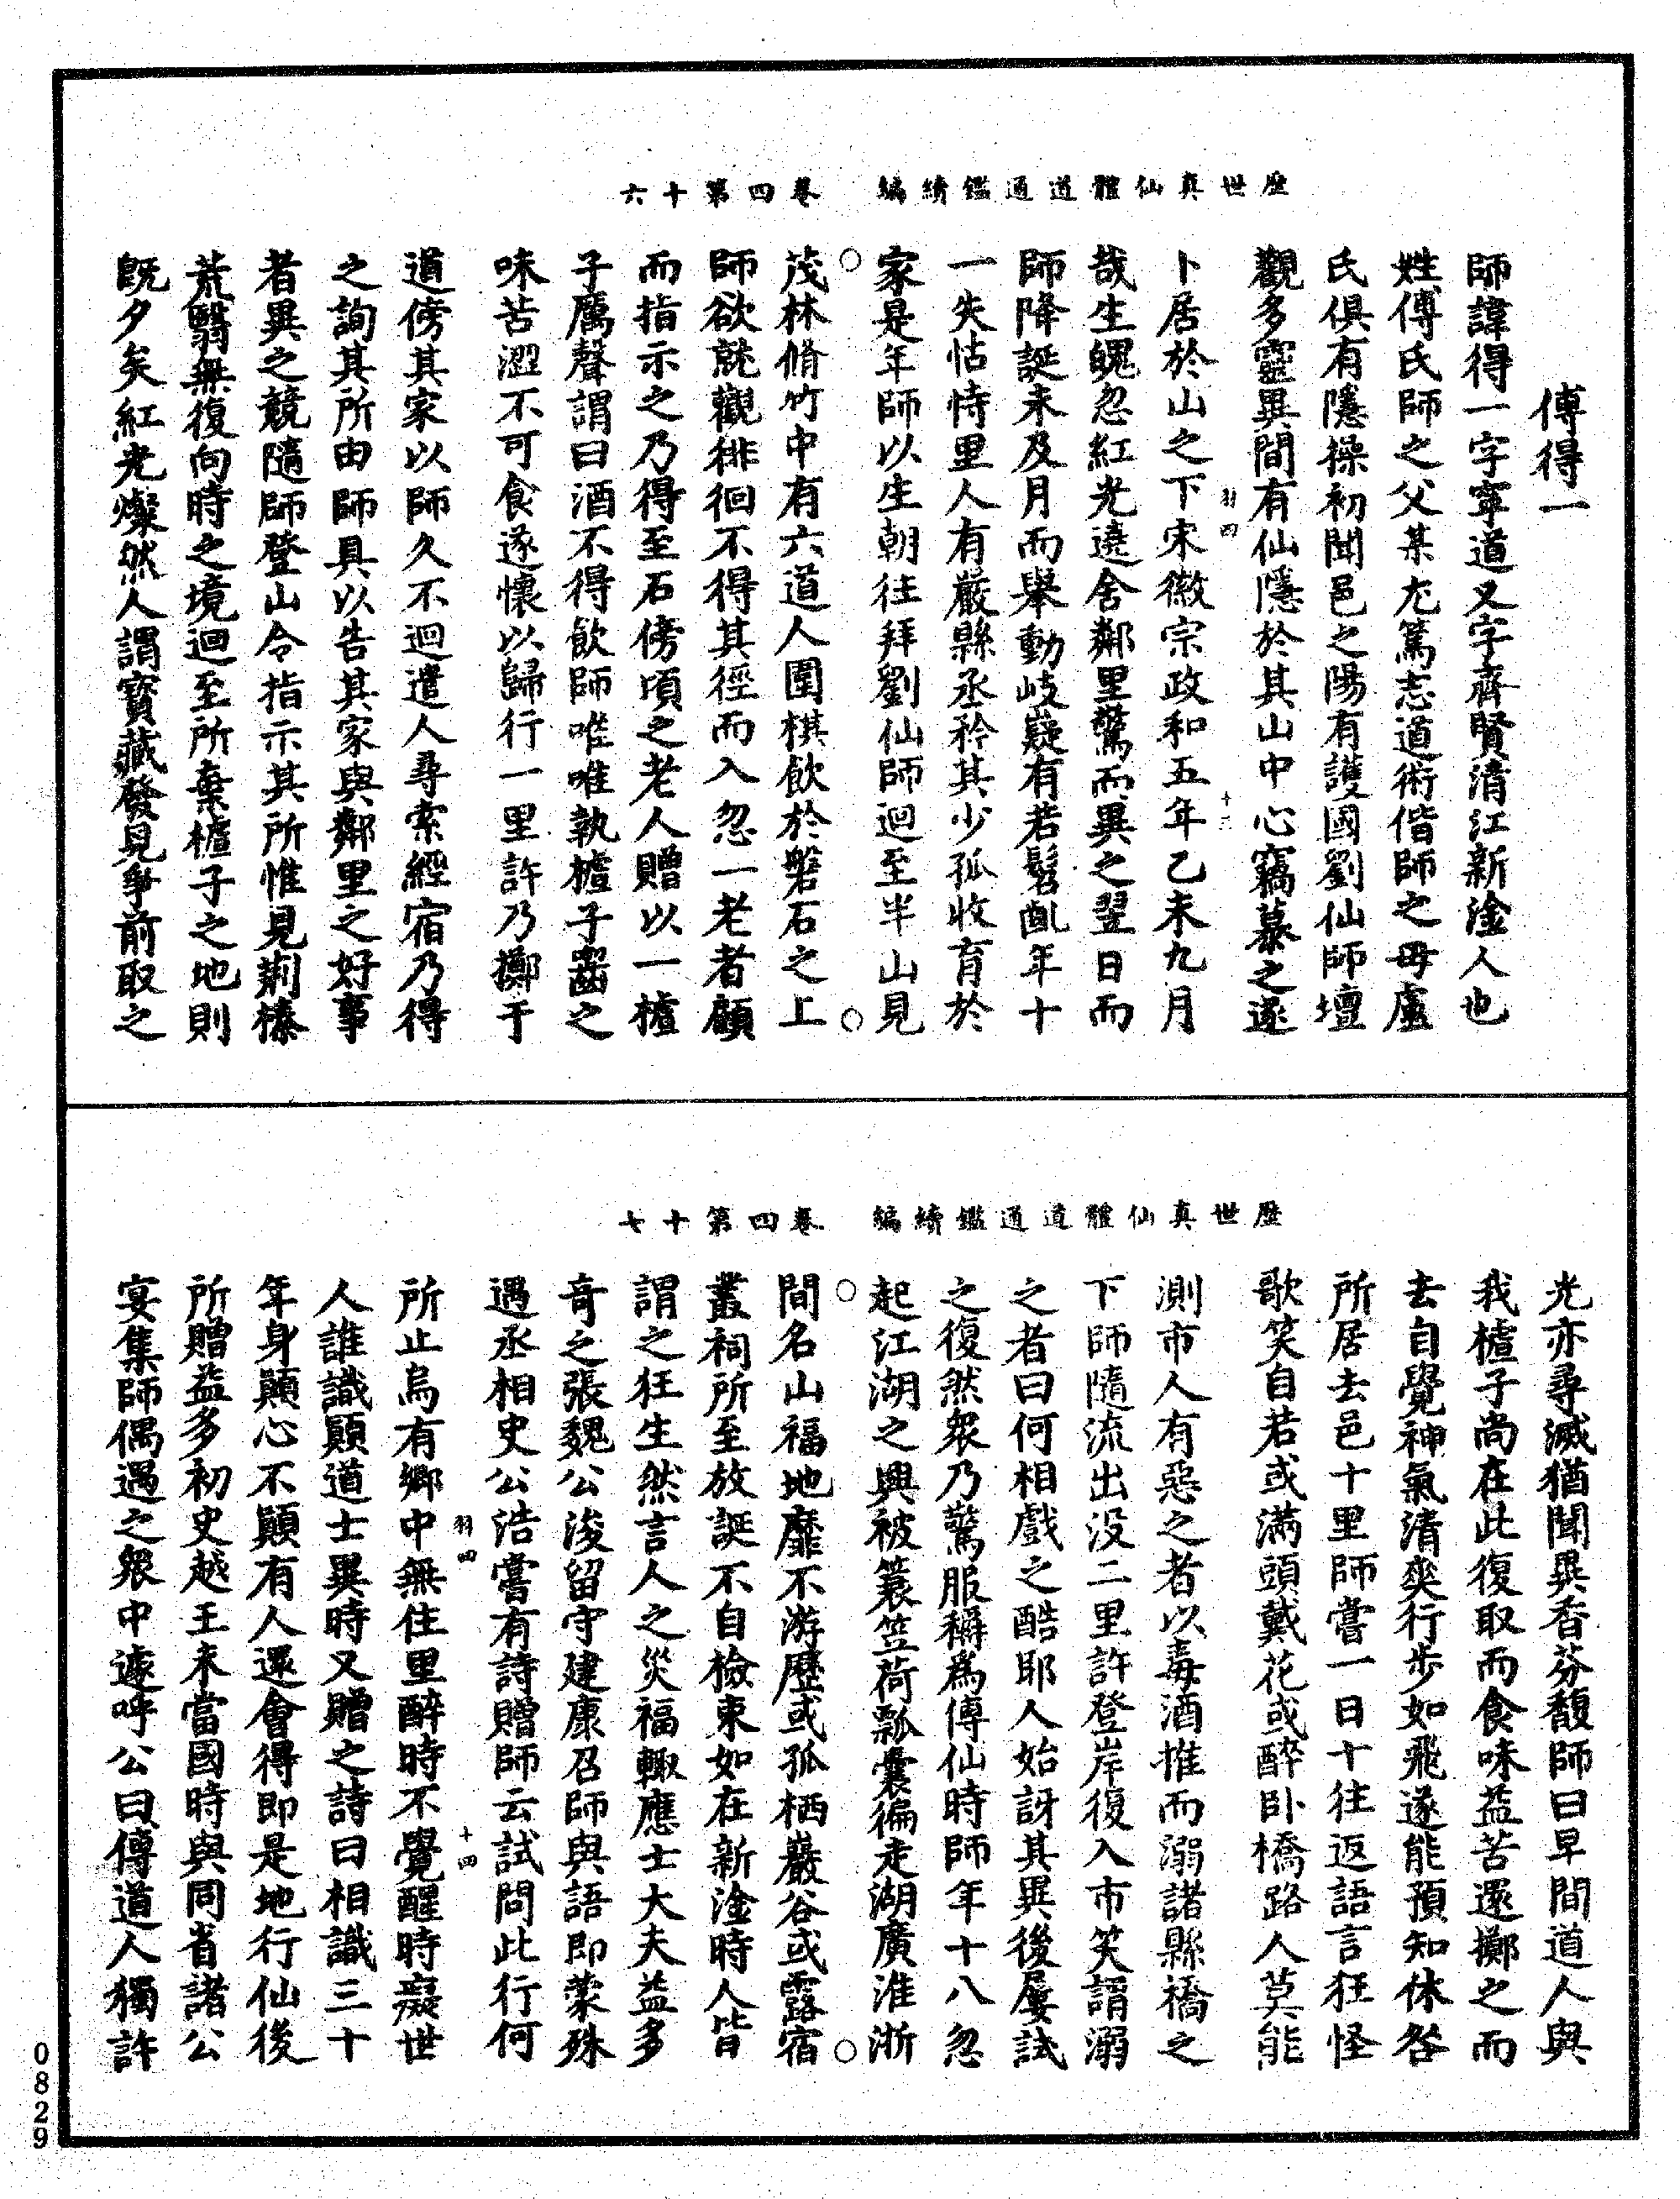 歷世真仙體道通鑑續編　卷四第十六
傅得一
師諱得一字寧道又字齊賢清江新淦人也
姓傅氏師之父某尤篤志道術偕師之母盧
氏俱有隱操初聞邑之陽有護國劉仙師壇
觀多靈異間有仙隱於其山中心竊慕之遂
羽四　十三
卜居於山之下宋徽宗政和五年乙未九月
哉生魄忽紅光遶舍鄰里驚而異之翌日而
師降誕未及月而舉動岐嶷有若髫齔年十
一失怙恃里人有嚴縣丞矜其少孤收育於
家是年師以生朝往拜劉仙師迴至半山見
茂林脩竹中有六道人圍棋飲於磐石之上
師欲就觀徘徊不得其徑而入忽一老者顧
而指示之乃得至石傍頃之老人贈以一樝
子厲聲謂曰酒不得飲師唯唯執樝子齧之
味苦澀不可食遂懷以歸行一里許乃擲于
道傍其家以師久不迴遣人尋索經宿乃得
之詢其所由師具以告其家與鄰里之好事
者異之競隨師登山令指示其所惟見荆榛
荒翳無復向時之境迴至所棄樝子之地則
既夕矣紅光燦然人謂寶藏發見爭前取之
歷世真仙體道通鑑續編　卷四第十七
光亦尋滅猶聞異香芬馥師曰早間道人與
我樝子尚在此復取而食味益苦還擲之而
去自覺神氣清爽行步如飛遂能預知休咎
所居去邑十里師嘗一日十往返語言狂怪
歌笑自若或滿頭戴花或醉卧橋路人莫能
測市人有惡之者以毒酒推而溺諸縣橋之
下師隨流出没二里許登岸復入市笑謂溺
之者曰何相戲之酷耶人始訝其異後屢試
之復然衆乃驚服稱爲傅仙時師年十八忽
起江湖之興被蓑笠荷瓢囊徧走湖廣淮浙
間名山福地靡不游歷或孤栖巖谷或露宿
叢祠所至放誕不自檢束如在新淦時人皆
謂之狂生然言人之災福輙應士大夫益多
奇之張魏公浚留守建康召師與語即蒙殊
遇丞相史公浩嘗有詩贈師云試問此行何
羽四　十四
所止烏有鄉中無住里醉時不覺醒時癡世
人誰識顛道士異時又贈之詩曰相識三十
年身顛心不顛有人還會得即是地行仙後
所贈益多初史越王未當國時與同省諸公
宴集師偶遇之衆中遽呼公曰傅道人獨許
0829